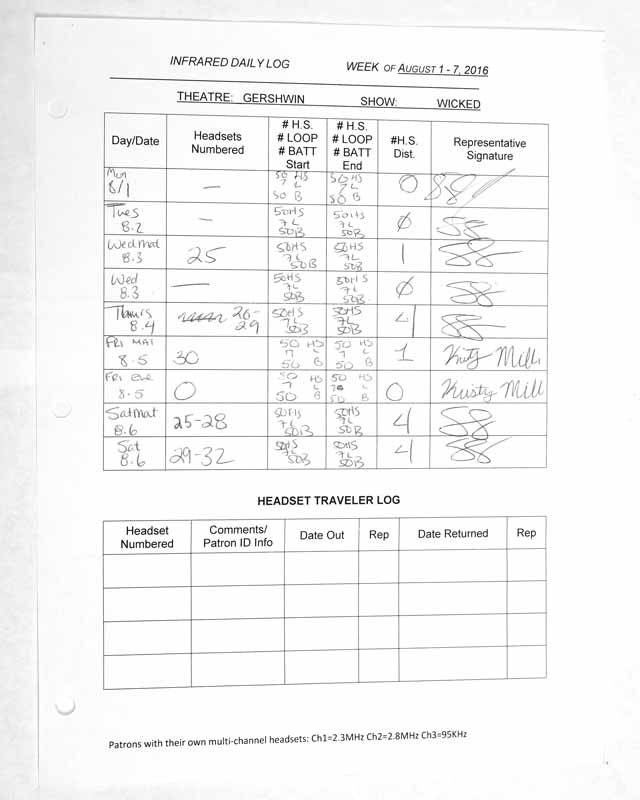 INFRARED DAILY LOG WEEK OF AUGUST 1 - 7, 2016
THEATRE: GERSHWIN SHOW: WICKED
Day/Date Headsets Numbered # H.S. # LOOP # BATT Start # H.S. # LOOP # BATT End #H.S. Dist. Representative Signature
Mon 8/1 — 50 HS 7 L 50 B 50 HS 7 L 50 B 0
Tues 8.2 — 50HS 7L 50B 50HS 7L 50B 0
Wed mat 8.3 25 50HS 7L 50B 50HS 7L 50B 1
Wed 8.3 — 50HS 7L 50B 50HS 7L 50B 0
Thurs 8.4 26-29 50HS 7L 50B 50HS 7L 50B 4
FRI MAT 8.5 30 50 HS 7 L 50 B 50 HS 7 L 50 B 1
FRI Eve 8.5 0 50 HS 7 L 50 B 50 HS 7 L 50 B 0 Kristy Mill
Sat Mat 8.6 25-28 50HS 7L 50B 50HS 7L 50B 4
Sat 8.6 29-32 50HS 7L 50B 50HS 7L 50B 4
HEADSET TRAVELER LOG
Headset Numbered Comments/ Patron ID Info Date Out Rep Date Returned Rep
Patrons with their own multi-channel headsets: Ch1=2.3MHz Ch2=2.8MHz Ch3=95KHz